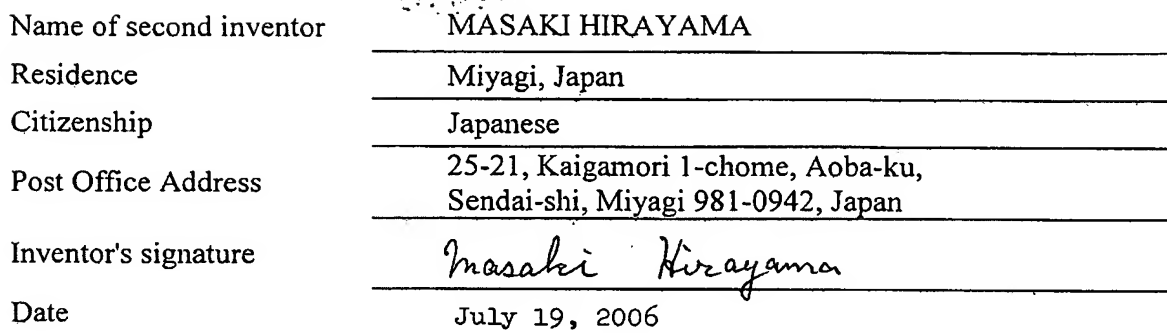 Name of second inventor MASAKI HIRAYAMA
Residence Miyagi, Japan
Citizenship Japanese
Post Office Address 25-21, Kaigamori 1-chome, Aoba-ku,
Sendai-shi, Miyagi 981-0942, Japan
Inventor's signature Masaki Hirayama
Date July 19, 2006